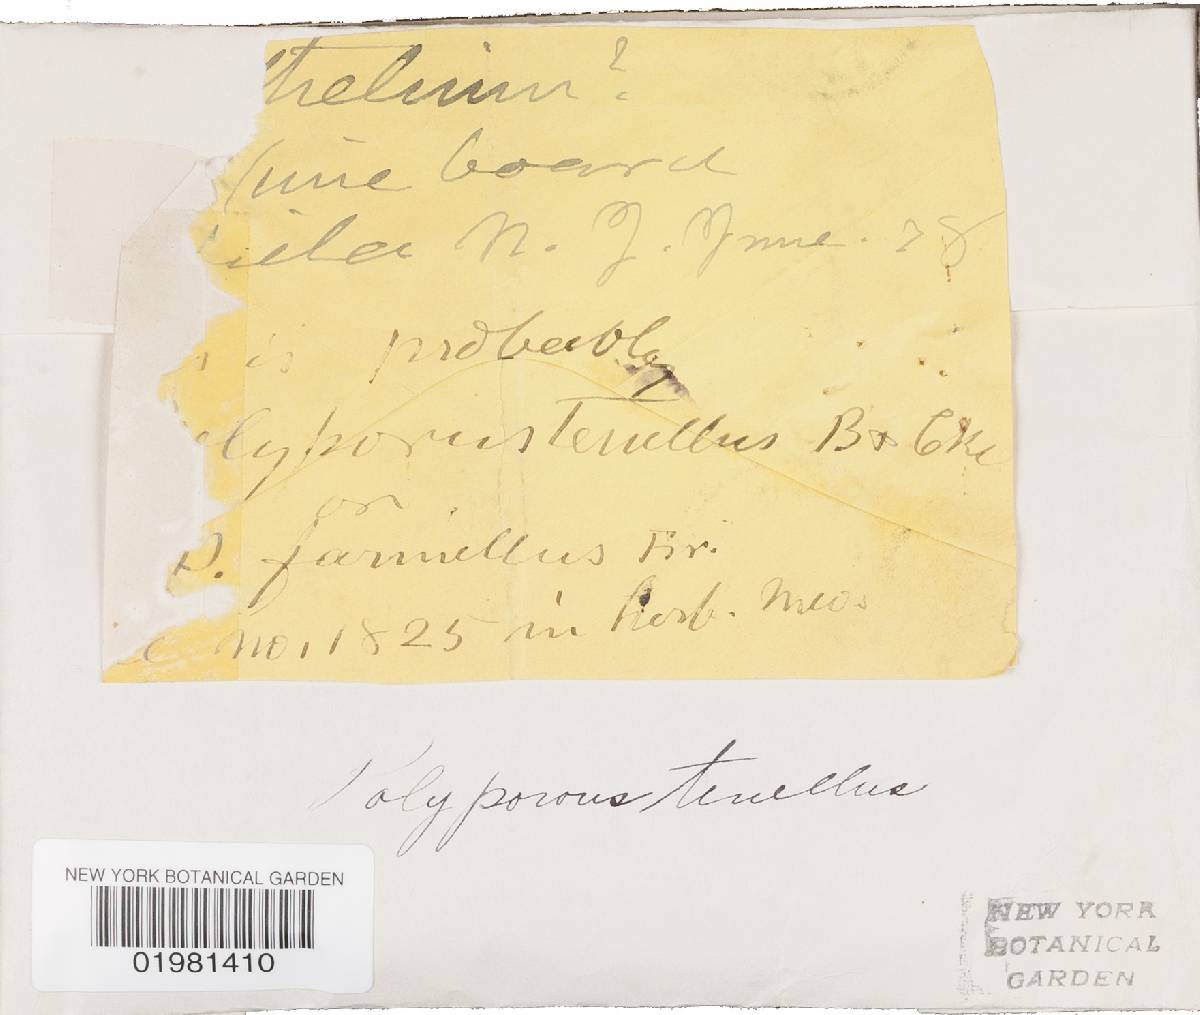 thelium?
pine board
field N. J. June. 78
is probably
lyporus Tenellus B & Cke
or
P. farinellus Fr.
no. 1825 in herb. meo.
Polyporous tenellus
NEW YORK BOTANICAL GARDEN
01981410
NEW YORK
BOTANICAL
GARDEN